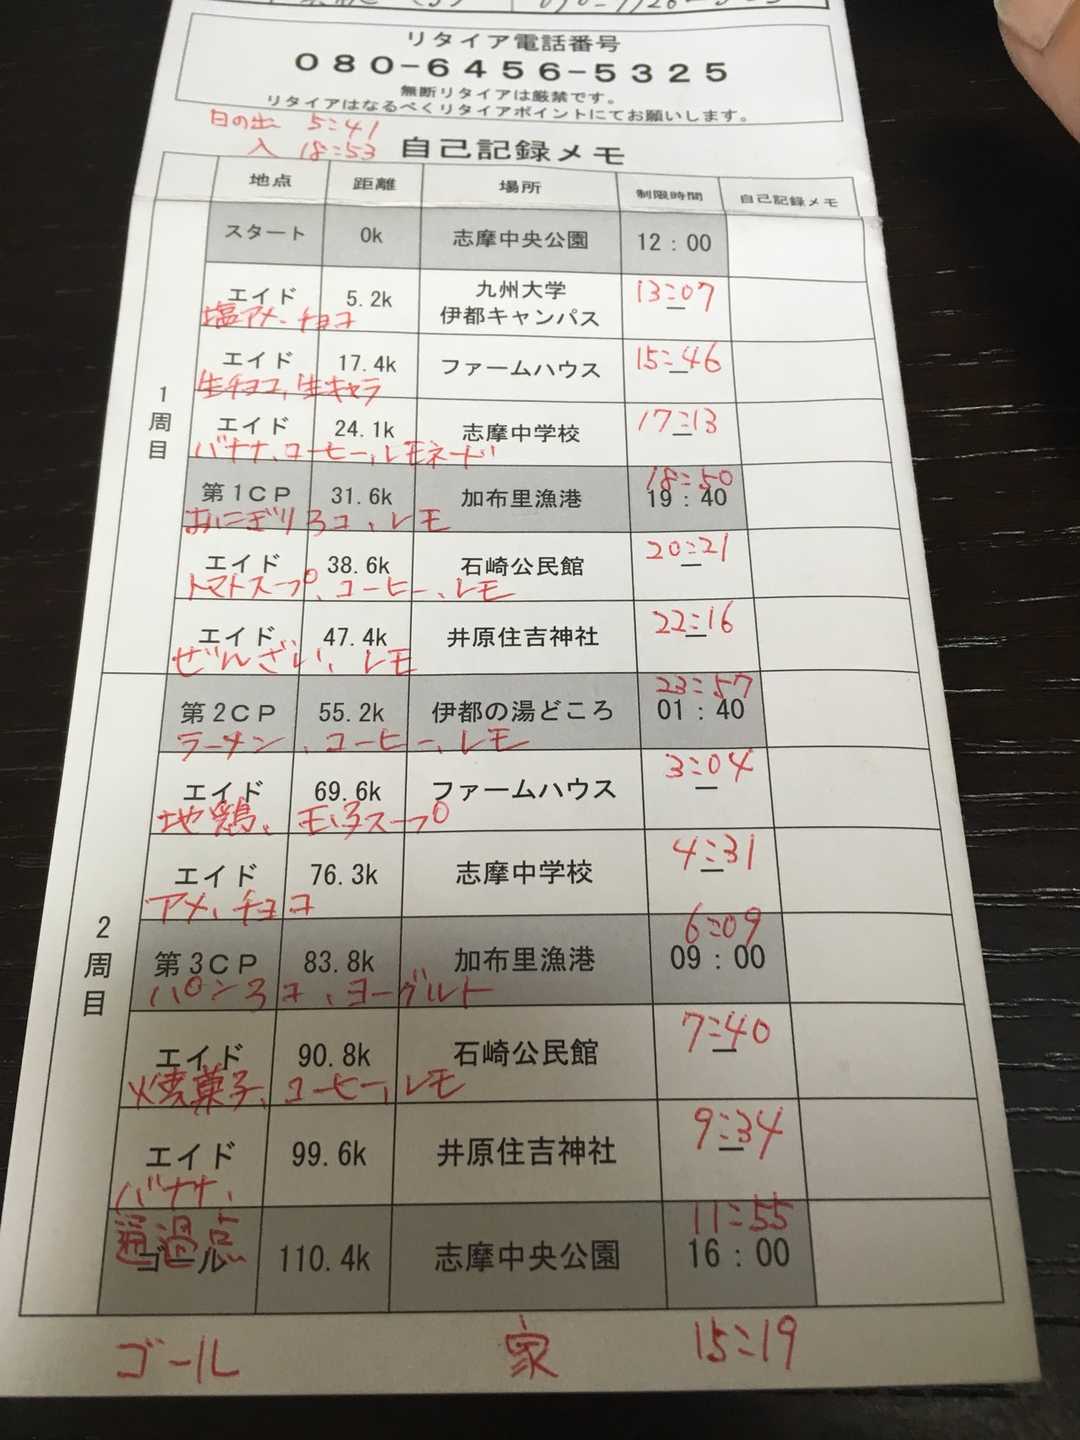 リタイア電話番号
080-6456-5325
無断リタイアは厳禁です。
リタイアはなるべくリタイアポイントにてお願いします。
日の出 5:41
入 18:53
自己記録メモ
地点 距離 場所 制限時間 自己記録メモ
1周目
スタート 0k 志摩中央公園 12:00
エイド 5.2k 九州大学 伊都キャンパス 13:07
塩アメ、チョコ
エイド 17.4k ファームハウス 15:46
生チョコ、生キャラ
エイド 24.1k 志摩中学校 17:13
バナナ、コーヒー、レモネード
18:50
第1CP 31.6k 加布里漁港 19:40
おにぎり3コ、レモ
エイド 38.6k 石崎公民館 20:21
トマトスープ、コーヒー、レモ
エイド 47.4k 井原住吉神社 22:16
ぜんざい、レモ
2周目
23:57
第2CP 55.2k 伊都の湯どころ 01:40
ラーメン、コーヒー、レモ
エイド 69.6k ファームハウス 3:04
地鶏、スープ
エイド 76.3k 志摩中学校 4:31
アメ、チョコ
6:09
第3CP 83.8k 加布里漁港 09:00
パン3コ、ヨーグルト
エイド 90.8k 石崎公民館 7:40
焼菓子、コーヒー、レモ
エイド 99.6k 井原住吉神社 9:34
バナナ、
通過点 11:55
ゴール 110.4k 志摩中央公園 16:00
ゴール 家 15:19